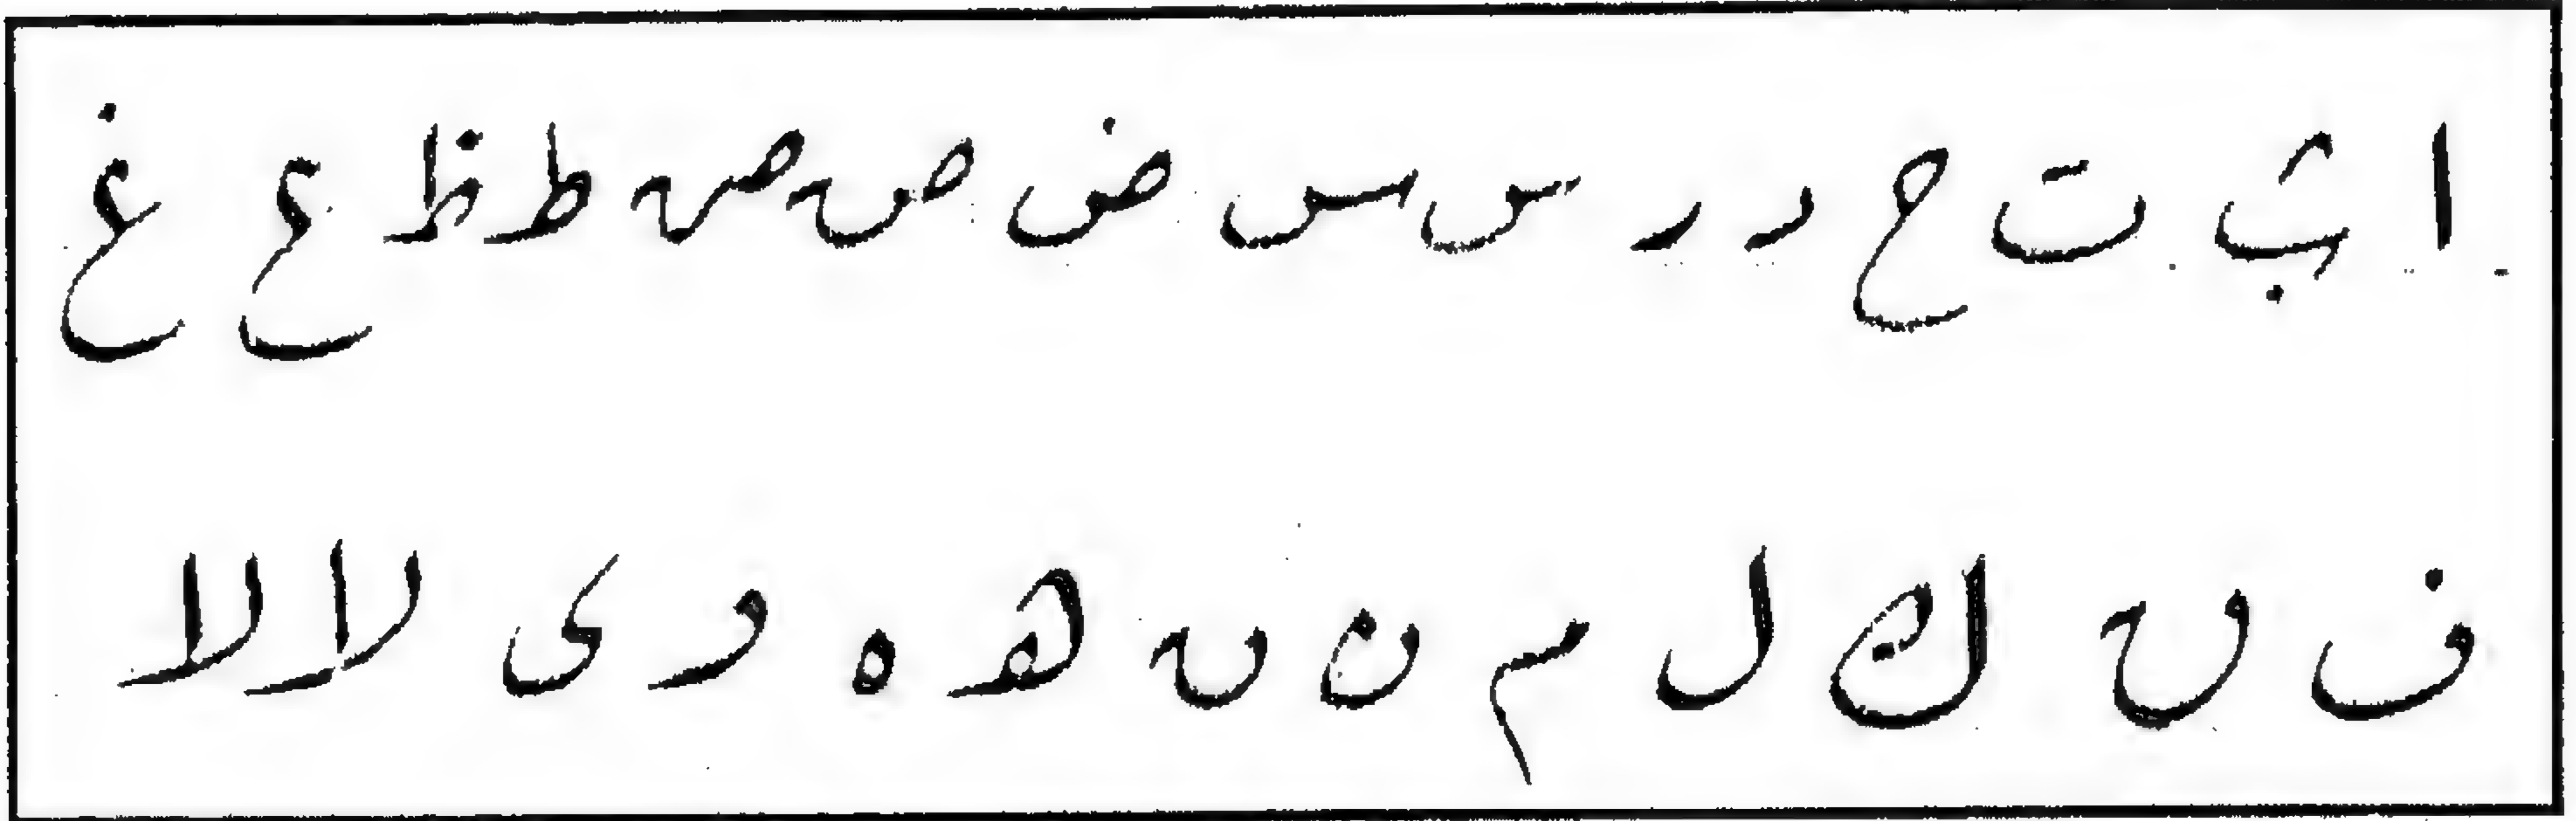 ا ث ت ح د ر س س ض ص ص ط ظ ع غ
ف ق ك ل م ن ن ه ه و ى لا لا